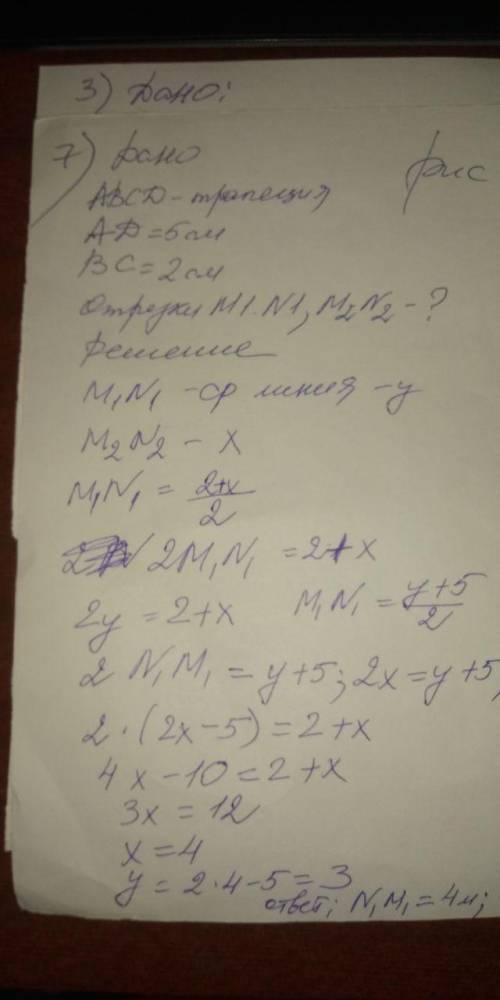 3) Дано:
7) Дано рис
ABCD - трапеция
AD = 5 см
BC = 2 см
Отрезки M1N1, M₂N₂ - ?
Решение
M₁N₁ - ср линия - y
M₂N₂ - x
M₁N₁ = (2+x)/2
2M₁N₁ = 2+x
2y = 2+x M₁N₁ = (y+5)/2
2 N₁M₁ = y+5; 2x = y+5,
2·(2x-5) = 2+x
4x-10 = 2+x
3x = 12
x = 4
y = 2·4-5 = 3
ответ; N₁M₁ = 4м;